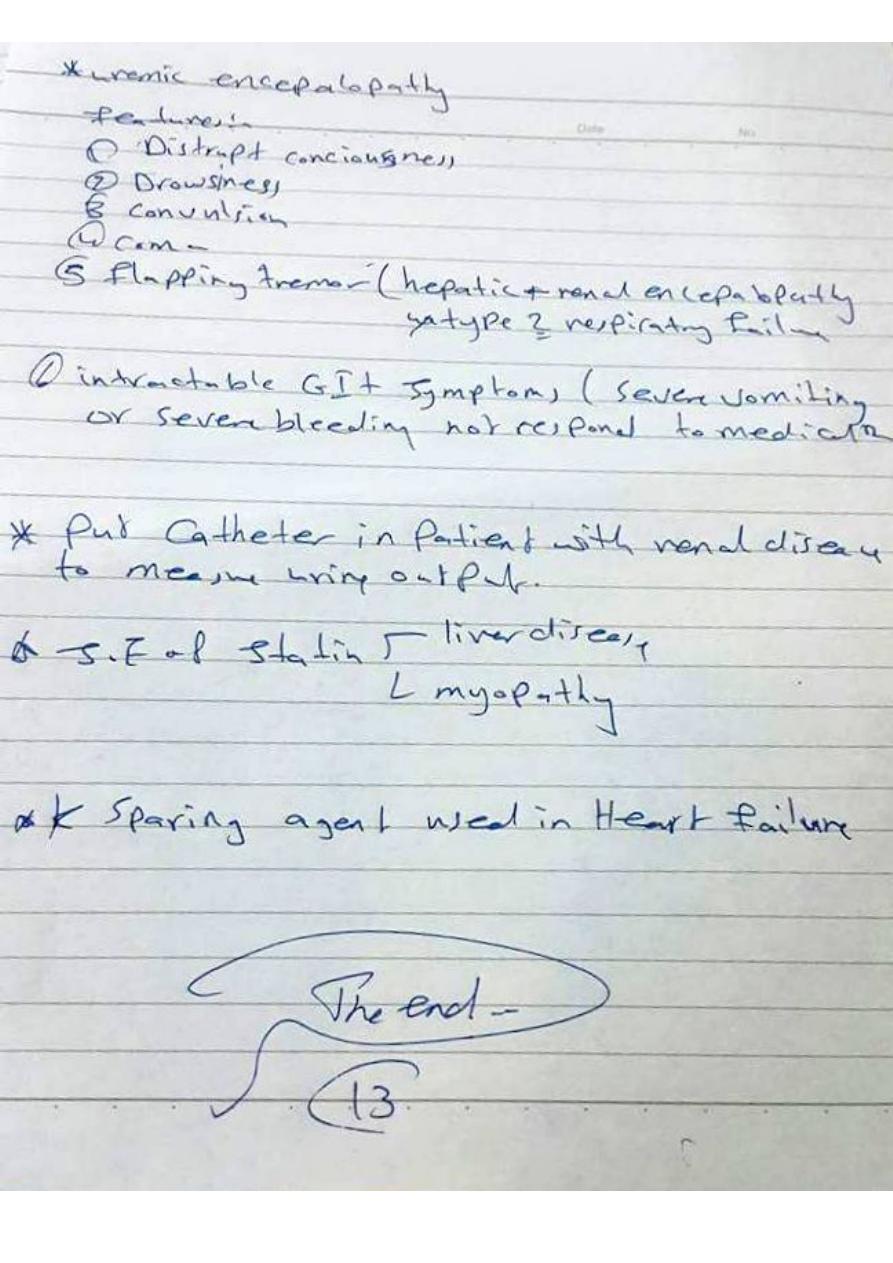 * uremic encepalopathy
features:
① Distrupt conciousness
Date No.
② Drowsiness
③ convulsion
④ coma
⑤ flapping tremor (hepatic + renal encepalopathy
type 2 respiratory failure
① intractable GIt symptoms ( severe vomiting
or severe bleeding not respond to medication
* Put Catheter in Patient with renal disease
to measure urine output.
* S.E of statin liver disease
myopathy
* K Sparing agent used in Heart failure
The end
13